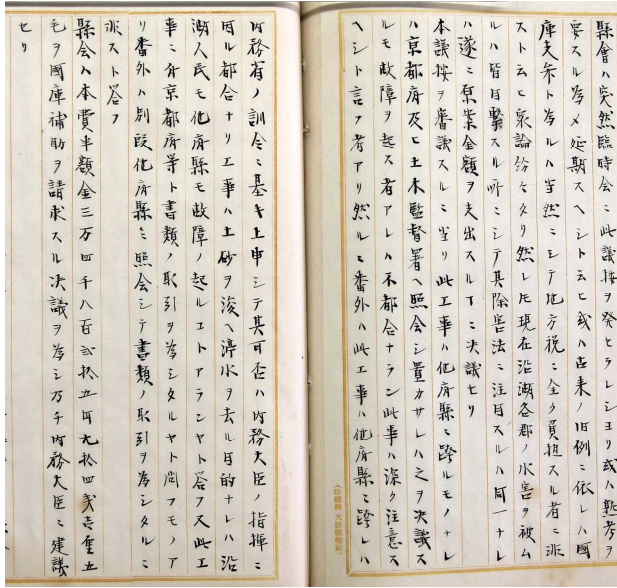 縣會ハ突然臨時会ニ此議按ヲ発セラレシヨリ或ハ熟考ヲ
要スル為メ延期スヘシト云ヒ或ハ古来ノ旧例ニ依レハ國
庫支弁ト為ルハ当然ニシテ地方税ニ全ク負担スル者ニ非
スト云ヒ衆論紛々タリ然レ𪜈現在沿湖各郡ノ水害ヲ被ム
ルハ皆目撃スル所ニシテ其除害法ニ注目スルハ同一ナレ
ハ遂ニ原案金額ヲ支出スルヿニ决議セリ
本議按ヲ審議スルニ当リ此工事ハ他府縣ニ跨ルモノナレ
ハ京都府及ヒ土木監督署ヘ照会シ置カサレハ之ヲ决議ス
ルモ故障ヲ起ス者アレハ不都合ナラン此事ハ深ク注意ス
ヘシト言フ者アリ然ルニ番外ハ此工事ハ他府縣ニ跨レハ
内務省ノ訓令ニ基キ上申シテ其可否ハ内務大臣ノ指揮ニ
因ル都合ナリ工事ハ土砂ヲ浚ヘ渟水ヲ去ル目的ナレハ沿
湖人民モ他府縣モ故障ノ起ルヿトアランヤト答フ又此工
事ニ付京都府等ト書類ノ取引ヲ為シタルヤト問フモノア
リ番外ハ別段他府縣ニ照会シテ書類ノ取引ヲ為シタルニ
非スト答フ
縣会ハ本費半額金三万四千八百弐拾五円九拾四銭壱厘五
毛ヲ國庫補助ヲ請求スル决議ヲ為シ乃チ内務大臣ニ建議
セリ